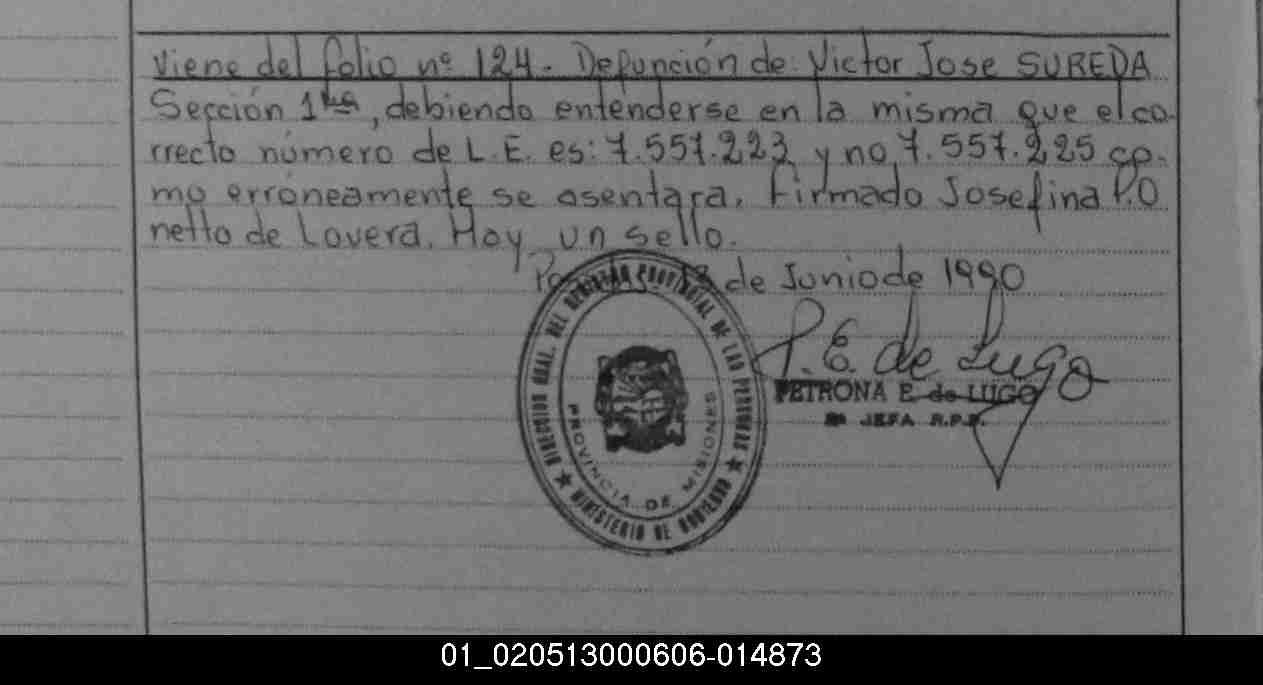 Viene del folio nº 124. Defunción de: Victor Jose SUREDA
Sección 1ra, debiendo entenderse en la misma que el co-
rrecto número de L.E. es: 7.557.223 y no 7.557.225 co-
mo erróneamente se asentara. Firmado Josefina P.O
netto de Lovera. Hay un sello.
de Junio de 1990
P. E. de Lugo
PETRONA E. de LUGO
JEFA R.P.P.
DIRECCION GRAL. DEL REGISTRO PROVINCIAL DE LAS PERSONAS
PROVINCIA DE MISIONES
MINISTERIO DE GOBIERNO
01_020513000606-014873